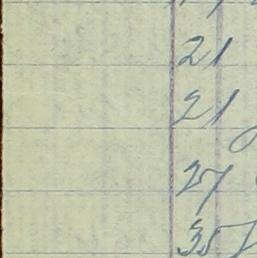 21
21
27
35